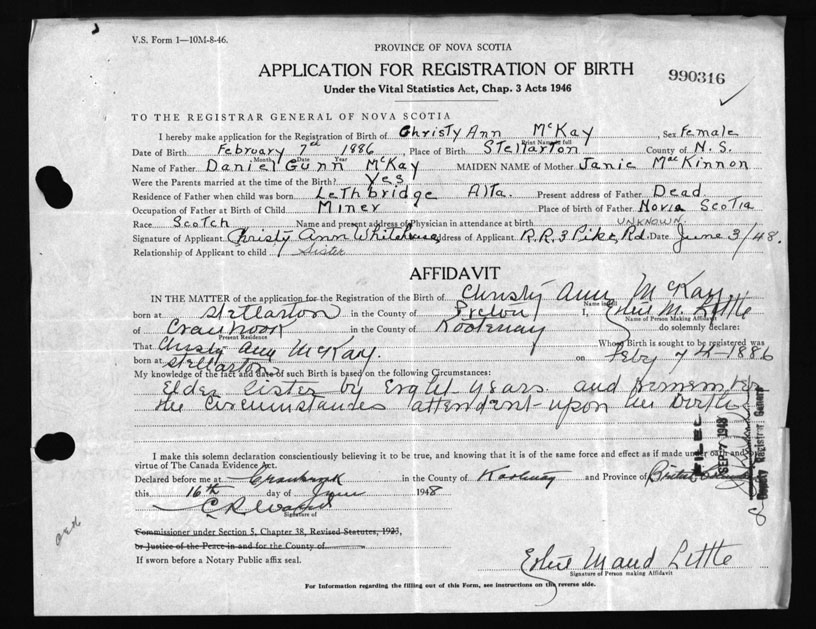 V.S. Form 1—10M-8-46.
PROVINCE OF NOVA SCOTIA
APPLICATION FOR REGISTRATION OF BIRTH
990316
Under the Vital Statistics Act, Chap. 3 Acts 1946
TO THE REGISTRAR GENERAL OF NOVA SCOTIA
I hereby make application for the Registration of Birth of Christy Ann McKay, Sex Female
Print Name in full
Date of Birth February 7th 1886, Place of Birth Stellarton County of N.S.
Month Date Year
Name of Father Daniel Gunn McKay MAIDEN NAME of Mother Janie MacKinnon
Were the Parents married at the time of the Birth? Yes
Residence of Father when child was born Lethbridge Alta. Present address of Father Dead.
Occupation of Father at Birth of Child Miner Place of birth of Father Novia Scotia
Race Scotch Name and present address of Physician in attendance at birth UNKNOWN.
Signature of Applicant Christy Ann Whitehouse Address of Applicant R.R.3 Pike Rd. Date June 3/48.
Relationship of Applicant to child Sister
AFFIDAVIT
IN THE MATTER of the application for the Registration of the Birth of Christy Ann McKay
Name in full
born at Stellarton in the County of Pictou I, M. Little
Name of Person Making Affidavit
of Cranbrook in the County of Kootenay do solemnly declare:
Present Residence
That Christy Ann McKay. Whose Birth is sought to be registered was
born at Stellarton on Feby 7th-1886
My knowledge of the fact and date of such Birth is based on the following Circumstances:
Elder Sister by Eight years and Remember
the Circumstances attendent upon her Birth
I make this solemn declaration conscientiously believing it to be true, and knowing that it is of the same force and effect as if made under oath and by
virtue of The Canada Evidence Act.
Declared before me at Cranbrook in the County of Kootenay and Province of British
this 16th day of June 1948
Signature of
Commissioner under Section 5, Chapter 38, Revised Statutes, 1923,
or Justice of the Peace in and for the County of
If sworn before a Notary Public affix seal.
Maud Little
Signature of Person making Affidavit
For Information regarding the filling out of this Form, see instructions on the reverse side.
FILED
SEP -7 1948
Deputy Registrar General